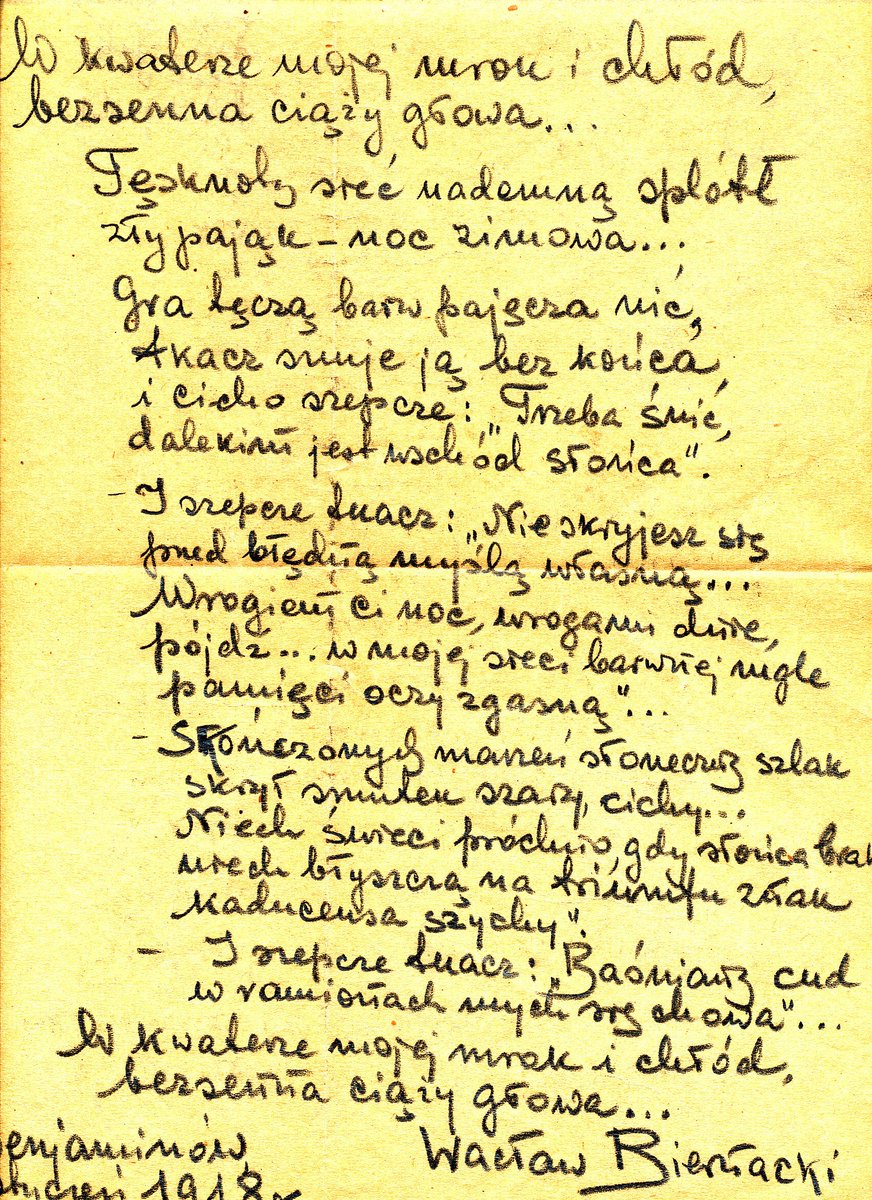 W kwaterze mojej mrok i chłód,
bezsenna ciąży głowa...
Tęsknoty sieć nademną splótł
zły pająk – noc zimowa...
Gra tęczą barw pajęcza nić,
tkacz snuje ją bez końca,
i cicho szepcze: „Trzeba śnić,
dalekim jest wschód słońca".
– I szepcze tkacz: „Nie skryjesz się
przed błędną myślą własną...
Wrogiem ci noc, wrogami dnie,
pójdź... w mojej sieci barwnej mgle
pamięci oczy zgasną"...
– Skończonych marzeń słoneczny szlak
skrył smutek szary, cichy...
Niech świeci próchno, gdy słońca brak
niech błyszczą na triumfu znak
Kaduceusa szychy".
– I szepcze tkacz: „Baśniany cud
w ramionach mych się chowa"...
W kwaterze mojej mrok i chłód,
bezsenna ciąży głowa...
enjaminów, Wacław Biernacki
tyczeń 1918 r